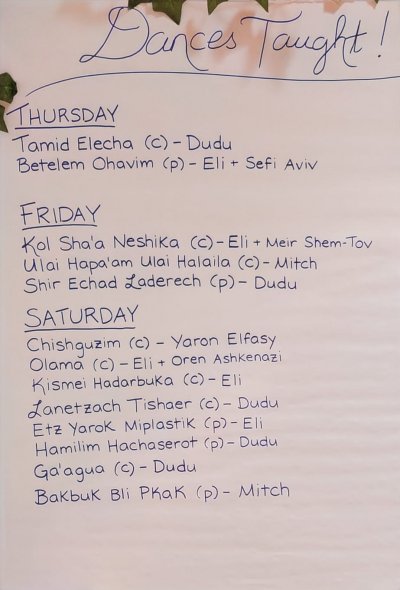 Dances Taught!
THURSDAY
Tamid Elecha (c) - Dudu
Betelem Ohavim (p) - Eli + Sefi Aviv
FRIDAY
Kol Sha'a Neshika (c) - Eli + Meir Shem-Tov
Ulai Hapa'am Ulai Halaila (c) - Mitch
Shir Echad Laderech (p) - Dudu
SATURDAY
Chishguzim (c) - Yaron Elfasy
Olama (c) - Eli + Oren Ashkenazi
Kismei Hadarbuka (c) - Eli
Lanetzach Tishaer (c) - Dudu
Etz Yarok Miplastik (p) - Eli
Hamilim Hachaserot (p) - Dudu
Ga'agua (c) - Dudu
Bakbuk Bli Pkak (p) - Mitch